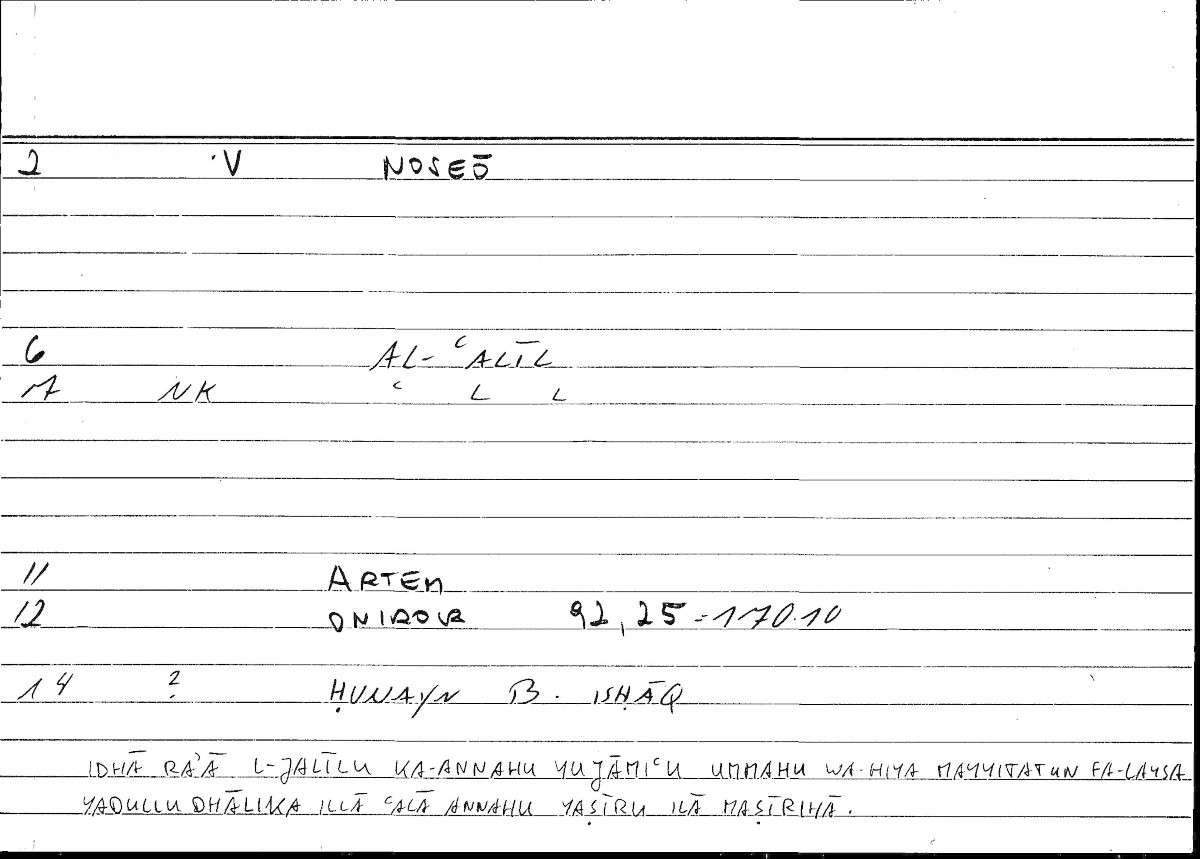 2 V NOSEŌ
6 AL-ʿALĪL
7 NK ʿ L L
11 ARTEM
12 ONIROCR 92,25 = 170.10
14 ? ḤUNAYN B. ISḤĀQ
IDHĀ RAʾĀ L-JALĪLU KA-ANNAHU YUJĀMIʿU UMMAHU WA-HIYA MAYYITATUN FA-LAYSA
YADULLU DHĀLIKA ILLĀ ʿALĀ ANNAHU YAṢĪRU ILĀ MAṢĪRIHĀ.